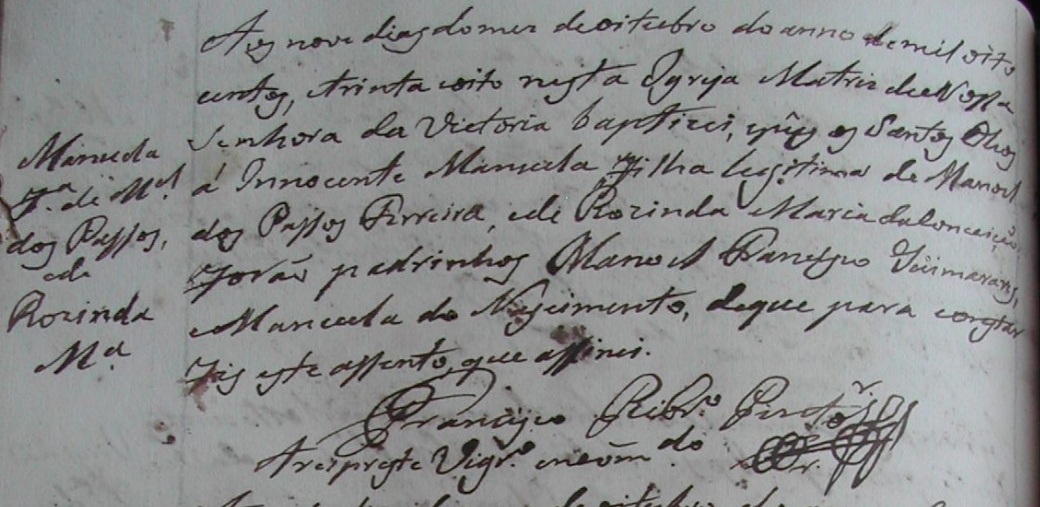 Manuela
F.ª de M.el
dos Passos,
e de
Rozinda
M.ª
Aos nove dias do mes de oitubro do anno de mil oito
centos, e trinta e oito nesta Igreja Matriz de Nossa
Senhora da Victoria baptizei, e pus os Santos Olios
á Innocente Manuela Filha legitima de Manoel
dos Passos Ferreira, e de Rozinda Maria da Conceição
Forão padrinhos Manoel Francisco Guimarans,
e Manuela do Nascimento, de que para constar
fis este assento, que assinei.
Francisco Ribr.º
Arcipreste Vigr.º encom.do